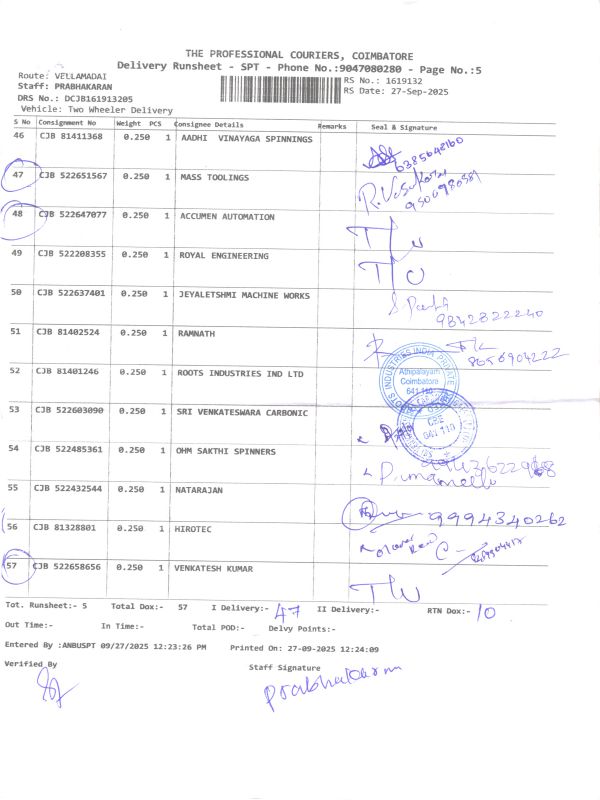 THE PROFESSIONAL COURIERS, COIMBATORE
Delivery Runsheet - SPT - Phone No.:9047080280 - Page No.:5
Route: VELLAMADAI
Staff: PRABHAKARAN
DRS No.: DCJB161913205
Vehicle: Two Wheeler Delivery
RS No.: 1619132
RS Date: 27-Sep-2025
S No Consignment No Weight PCS Consignee Details Remarks Seal & Signature
46 CJB 81411368 0.250 1 AADHI VINAYAGA SPINNINGS 6385648160
47 CJB 522651567 0.250 1 MASS TOOLINGS
48 CJB 522647077 0.250 1 ACCUMEN AUTOMATION
49 CJB 522208355 0.250 1 ROYAL ENGINEERING
50 CJB 522637401 0.250 1 JEYALETSHMI MACHINE WORKS 9842822240
51 CJB 81402524 0.250 1 RAMNATH 8056904222
52 CJB 81401246 0.250 1 ROOTS INDUSTRIES IND LTD ROOTS INDUSTRIES INDIA PRIVATE
Athipalayam
Coimbatore
641 110
53 CJB 522603090 0.250 1 SRI VENKATESWARA CARBONIC CBE
641 110
54 CJB 522485361 0.250 1 OHM SAKTHI SPINNERS
55 CJB 522432544 0.250 1 NATARAJAN 9994340262
56 CJB 81328801 0.250 1 HIROTEC
57 CJB 522658656 0.250 1 VENKATESH KUMAR
Tot. Runsheet:- 5 Total Dox:- 57 I Delivery:- 47 II Delivery:- RTN Dox:- 10
Out Time:- In Time:- Total POD:- Delvy Points:-
Entered By :ANBUSPT 09/27/2025 12:23:26 PM Printed On: 27-09-2025 12:24:09
Verified By Staff Signature
Prabhakaran